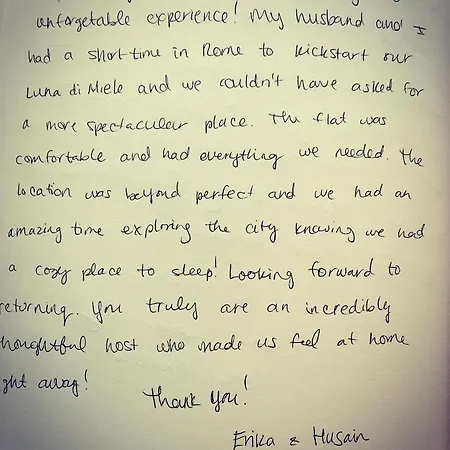 unforgetable experience! My husband and I
had a short time in Rome to kickstart our
Luna di Miele and we couldn't have asked for
a more spectacular place. The flat was
comfortable and had everything we needed. The
location was beyond perfect and we had an
amazing time exploring the city knowing we had
a cozy place to sleep! Looking forward to
returning. You truly are an incredibly
thoughtful host who made us feel at home
ght away!
Thank you!
Erika & Husain